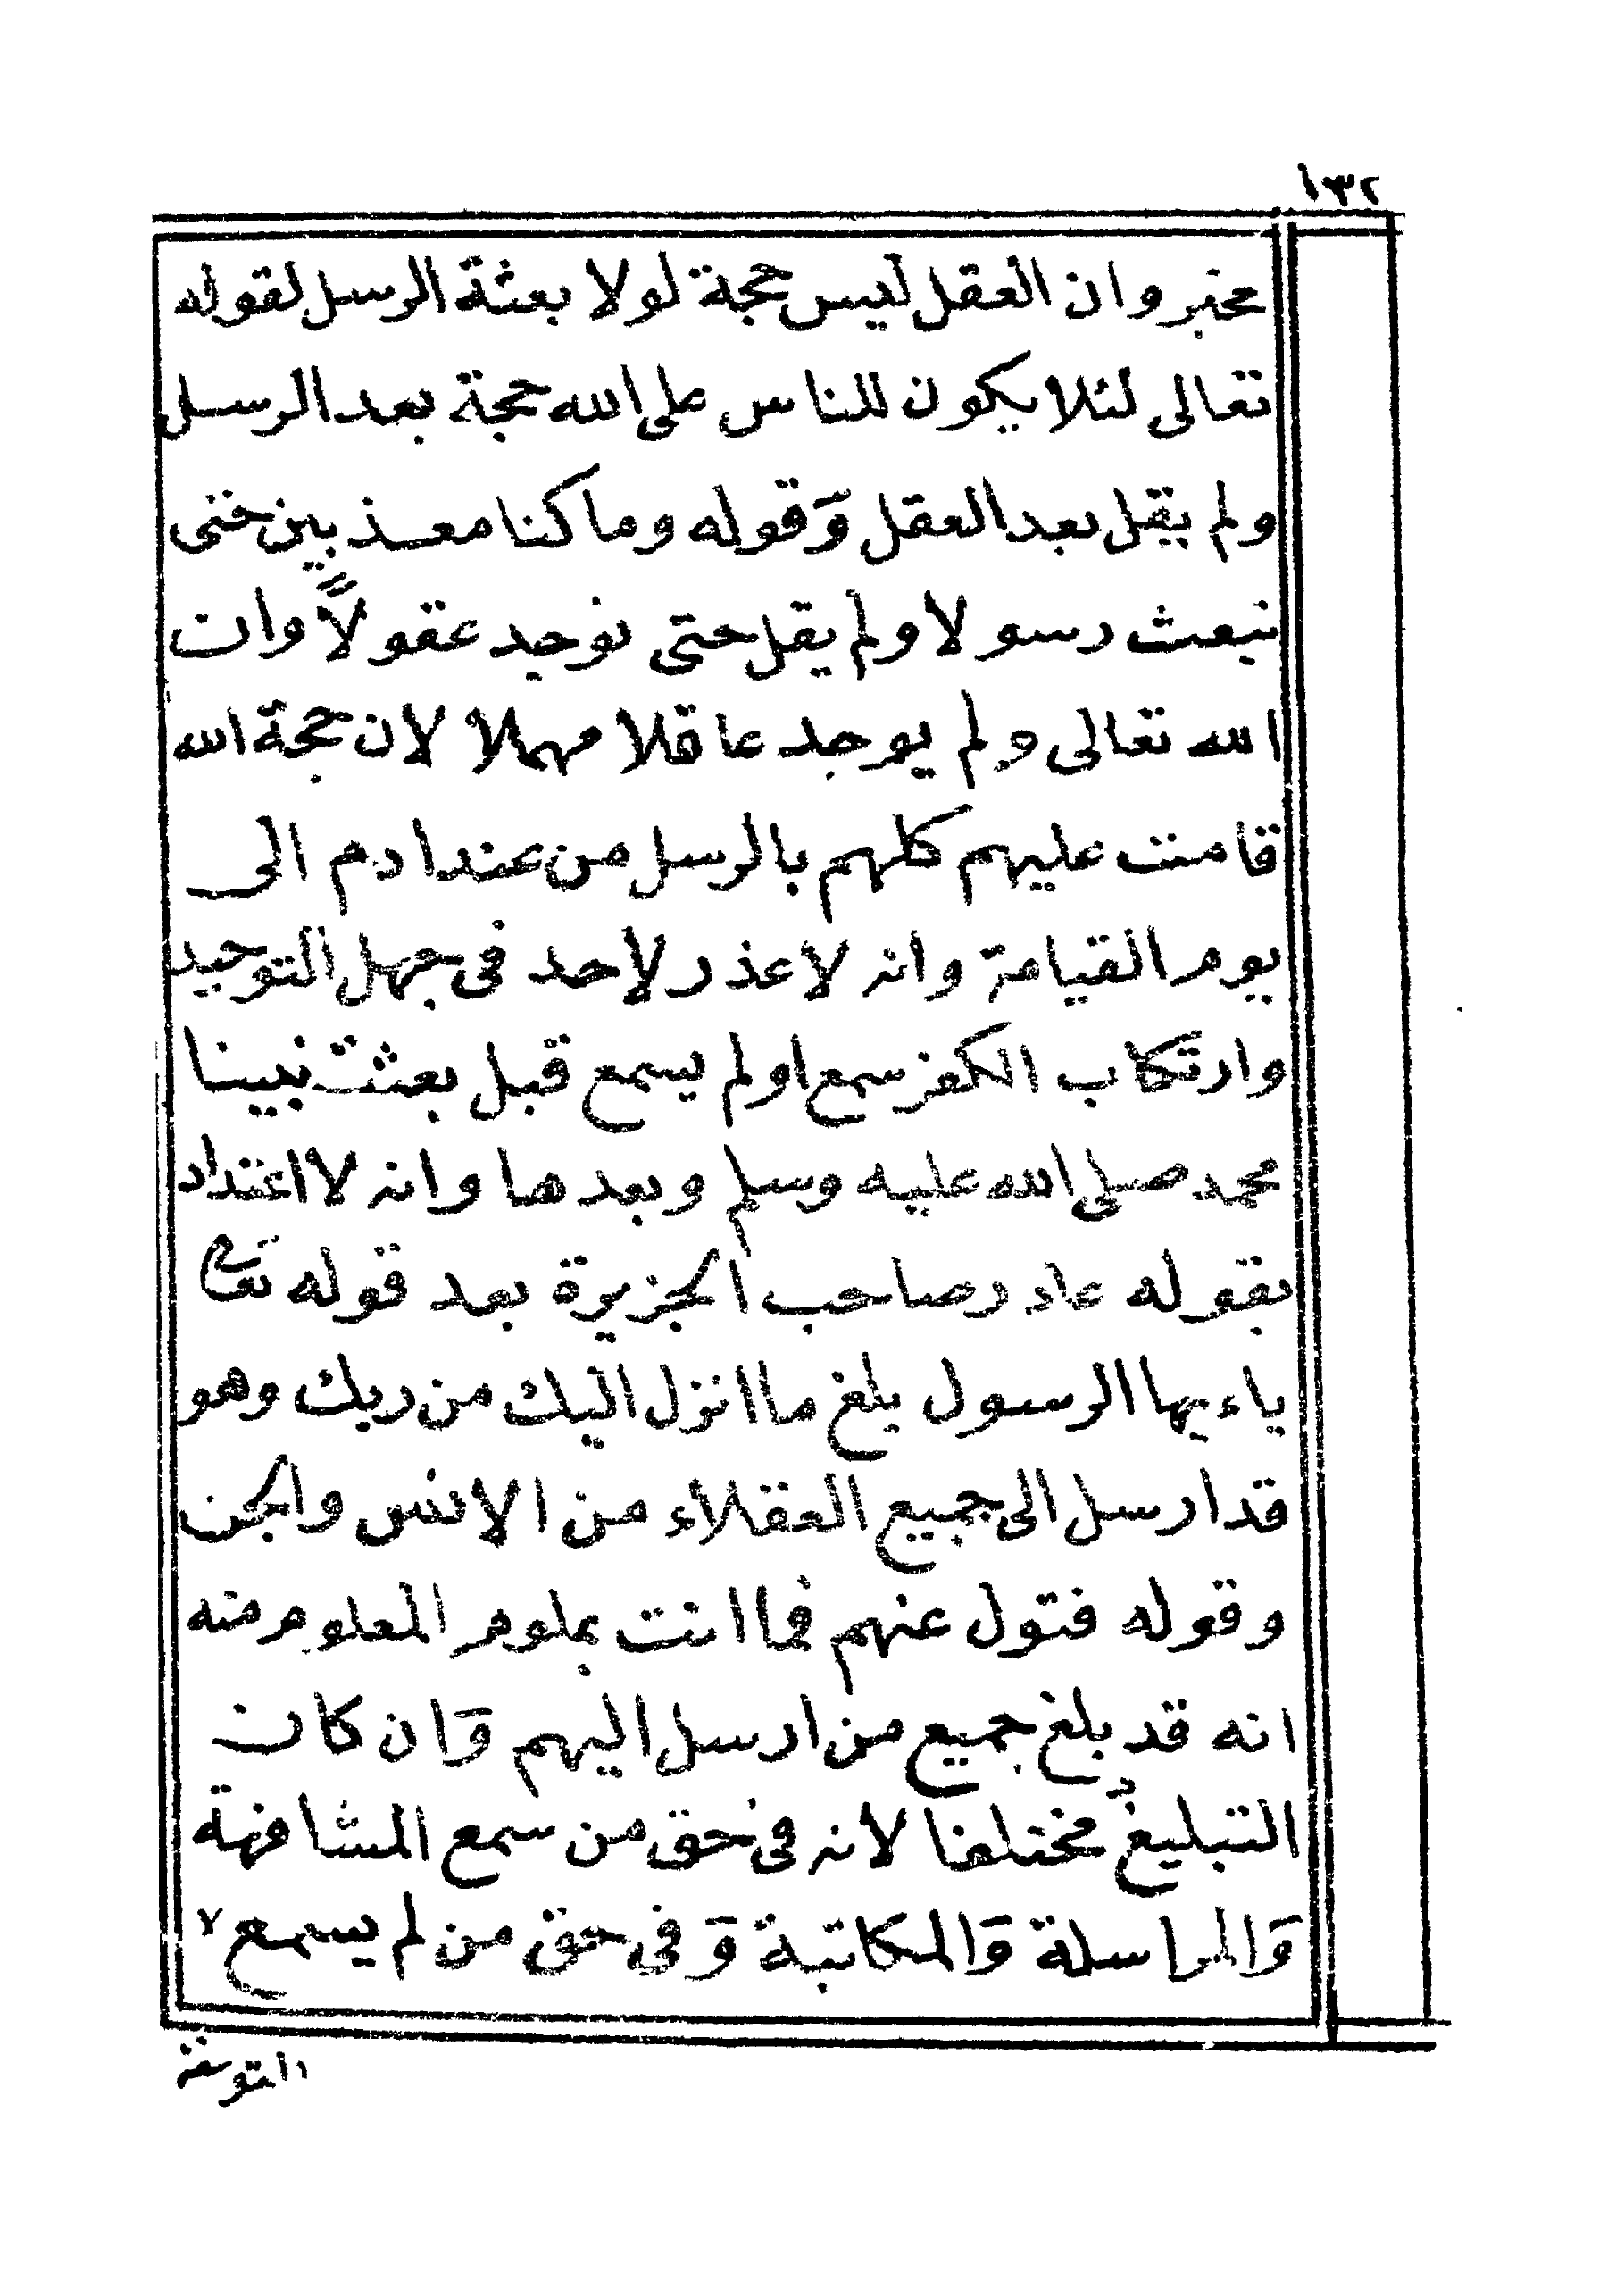 ١٣٢
مخبر وان العقل ليس حجة لولا بعثة الرسل لقوله
تعالى لئلا يكون للناس على الله حجة بعد الرسل
ولم يقل بعد العقل وَقوله وما كنا معذبين حتى
نبعث رسولا ولم يقل حتى نوجد عقولاً وان
الله تعالى ولم يوجد عاقلا مهملا لان حجة الله
قامت عليهم كلهم بالرسل من عند ادم الى
يوم القيامة وانه لا عذر لاحد فى جهل التوحيد
وارتكاب الكفر سمع او لم يسمع قبل بعثت نبينا
محمد صلى الله عليه وسلم وبعدها وانه لا اعتداد
بقوله عاد رصاحب الجزيرة بعد قوله تعالى
ياءيها الرسول بلغ ما انزل اليك من ربك وهو
قد ارسل الى جميع العقلاء من الانس والجن
وقوله فتول عنهم فما انت بملوم المعلوم منه
انه قد بلغ جميع من ارسل اليهم وَان كان
التبليغ مختلفا لانه فى حق من سمع المشافهة
وَالمراسلة وَالمكاتبة وَفى حق من لم يسمع ٧